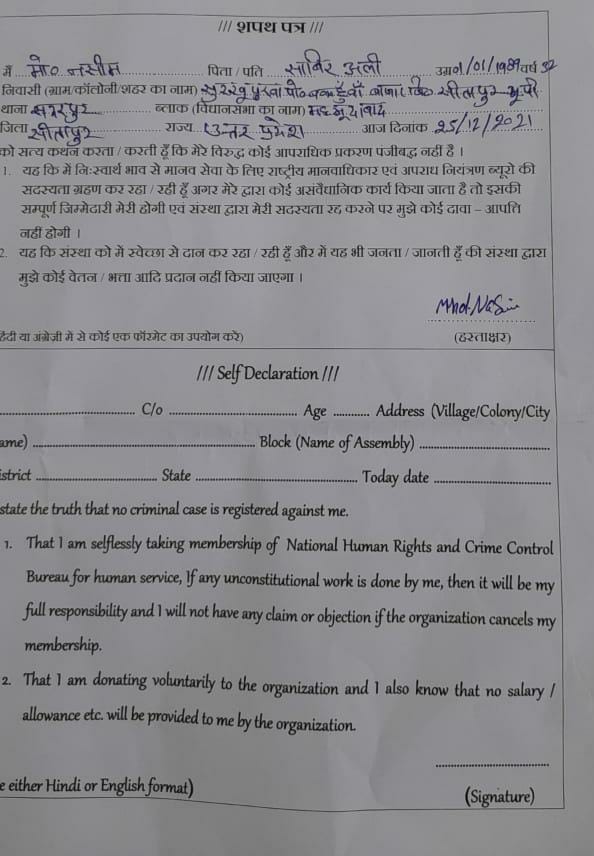 /// शपथ पत्र ///
मैं .... मो० नसीम .... पिता / पति .... साबिर अली .... उम्र 01/01/1989 वर्ष 32
निवासी (ग्राम/कॉलोनी/शहर का नाम) पो० सीतापुर यूपी
थाना सदरपुर ब्लाक (विधानसभा का नाम) महमूदाबाद
जिला सीतापुर राज्य उत्तर प्रदेश आज दिनांक 25/12/2021
को सत्य कथन करता / करती हूँ कि मेरे विरुद्ध कोई आपराधिक प्रकरण पंजीबद्ध नहीं है ।
1. यह कि में निःस्वार्थ भाव से मानव सेवा के लिए राष्ट्रीय मानवाधिकार एवं अपराध नियंत्रण ब्यूरो की
सदस्यता ग्रहण कर रहा / रही हूँ अगर मेरे द्वारा कोई असंवैधानिक कार्य किया जाता है तो इसकी
सम्पूर्ण जिम्मेदारी मेरी होगी एवं संस्था द्वारा मेरी सदस्यता रद्द करने पर मुझे कोई दावा – आपत्ति
नहीं होगी ।
2. यह कि संस्था को में स्वेच्छा से दान कर रहा / रही हूँ और में यह भी जनता / जानती हूँ की संस्था द्वारा
मुझे कोई वेतन / भत्ता आदि प्रदान नहीं किया जाएगा ।
Mhd. Nasim
हिंदी या अंग्रेज़ी में से कोई एक फॉरमेट का उपयोग करें) (हस्ताक्षर)
/// Self Declaration ///
.... C/o .... Age .... Address (Village/Colony/City
ame) .... Block (Name of Assembly) ....
istrict .... State .... Today date ....
state the truth that no criminal case is registered against me.
1. That I am selflessly taking membership of National Human Rights and Crime Control
Bureau for human service, If any unconstitutional work is done by me, then it will be my
full responsibility and I will not have any claim or objection if the organization cancels my
membership.
2. That I am donating voluntarily to the organization and I also know that no salary /
allowance etc. will be provided to me by the organization.
e either Hindi or English format) (Signature)